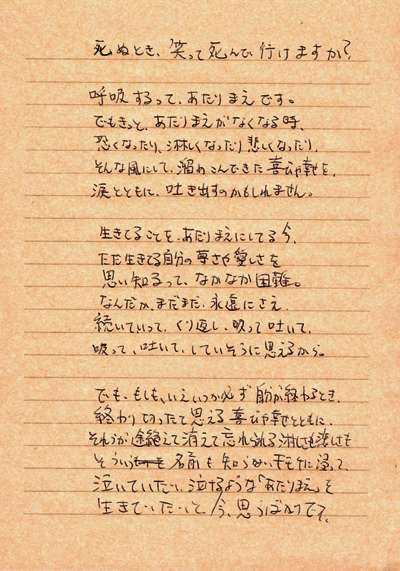 死ぬとき、笑って死んで行けますか？
呼吸するって、あたりまえです。
でもきっと、あたりまえがなくなる時、
恐くなったり、淋しくなったり悲しくなったり、
そんな風にして、溜めこんできた喜びや幸せを、
涙とともに、吐き出すのかもしれません。
生きてることを、あたりまえにしてる今、
ただ生きてる自分の尊さや愛しさを
思い知るって、なかなか困難。
なんだか、まだまだ、永遠にさえ
続いていって、くり返し、吸って吐いて、
吸って、吐いて、していそうに思えるから。
でも、もしも、いえいつか必ず自分が終わるとき、
終わり切ったと思える喜びや幸せとともに、
それらが途絶えて消えて忘れられる淋しさも凄いさも
そういう 名前も知らぬ、モヤモヤに浸って、
泣いていたい、泣けるような「あたりまえ」を
生きていたいと、今、思うばかりです。